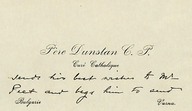 Père Dunstan C. P.
Curé Catholique
sends his best wishes to Mr
Peet and begs him to send
Bulgarie Varna